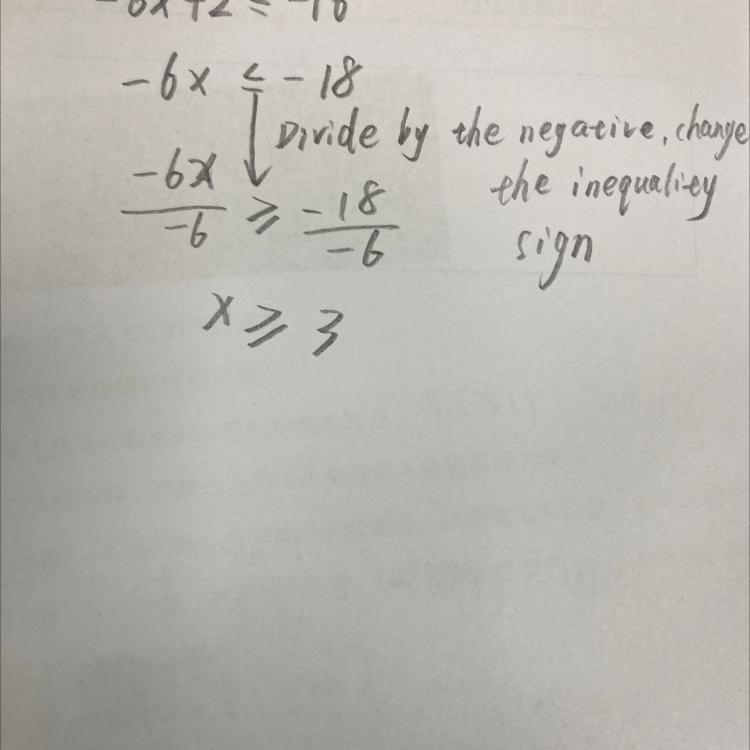 -6x+2 ≤ -16
-6x ≤ -18
Divide by the negative, change
the inequality
sign
-6x/-6 ≥ -18/-6
x ≥ 3